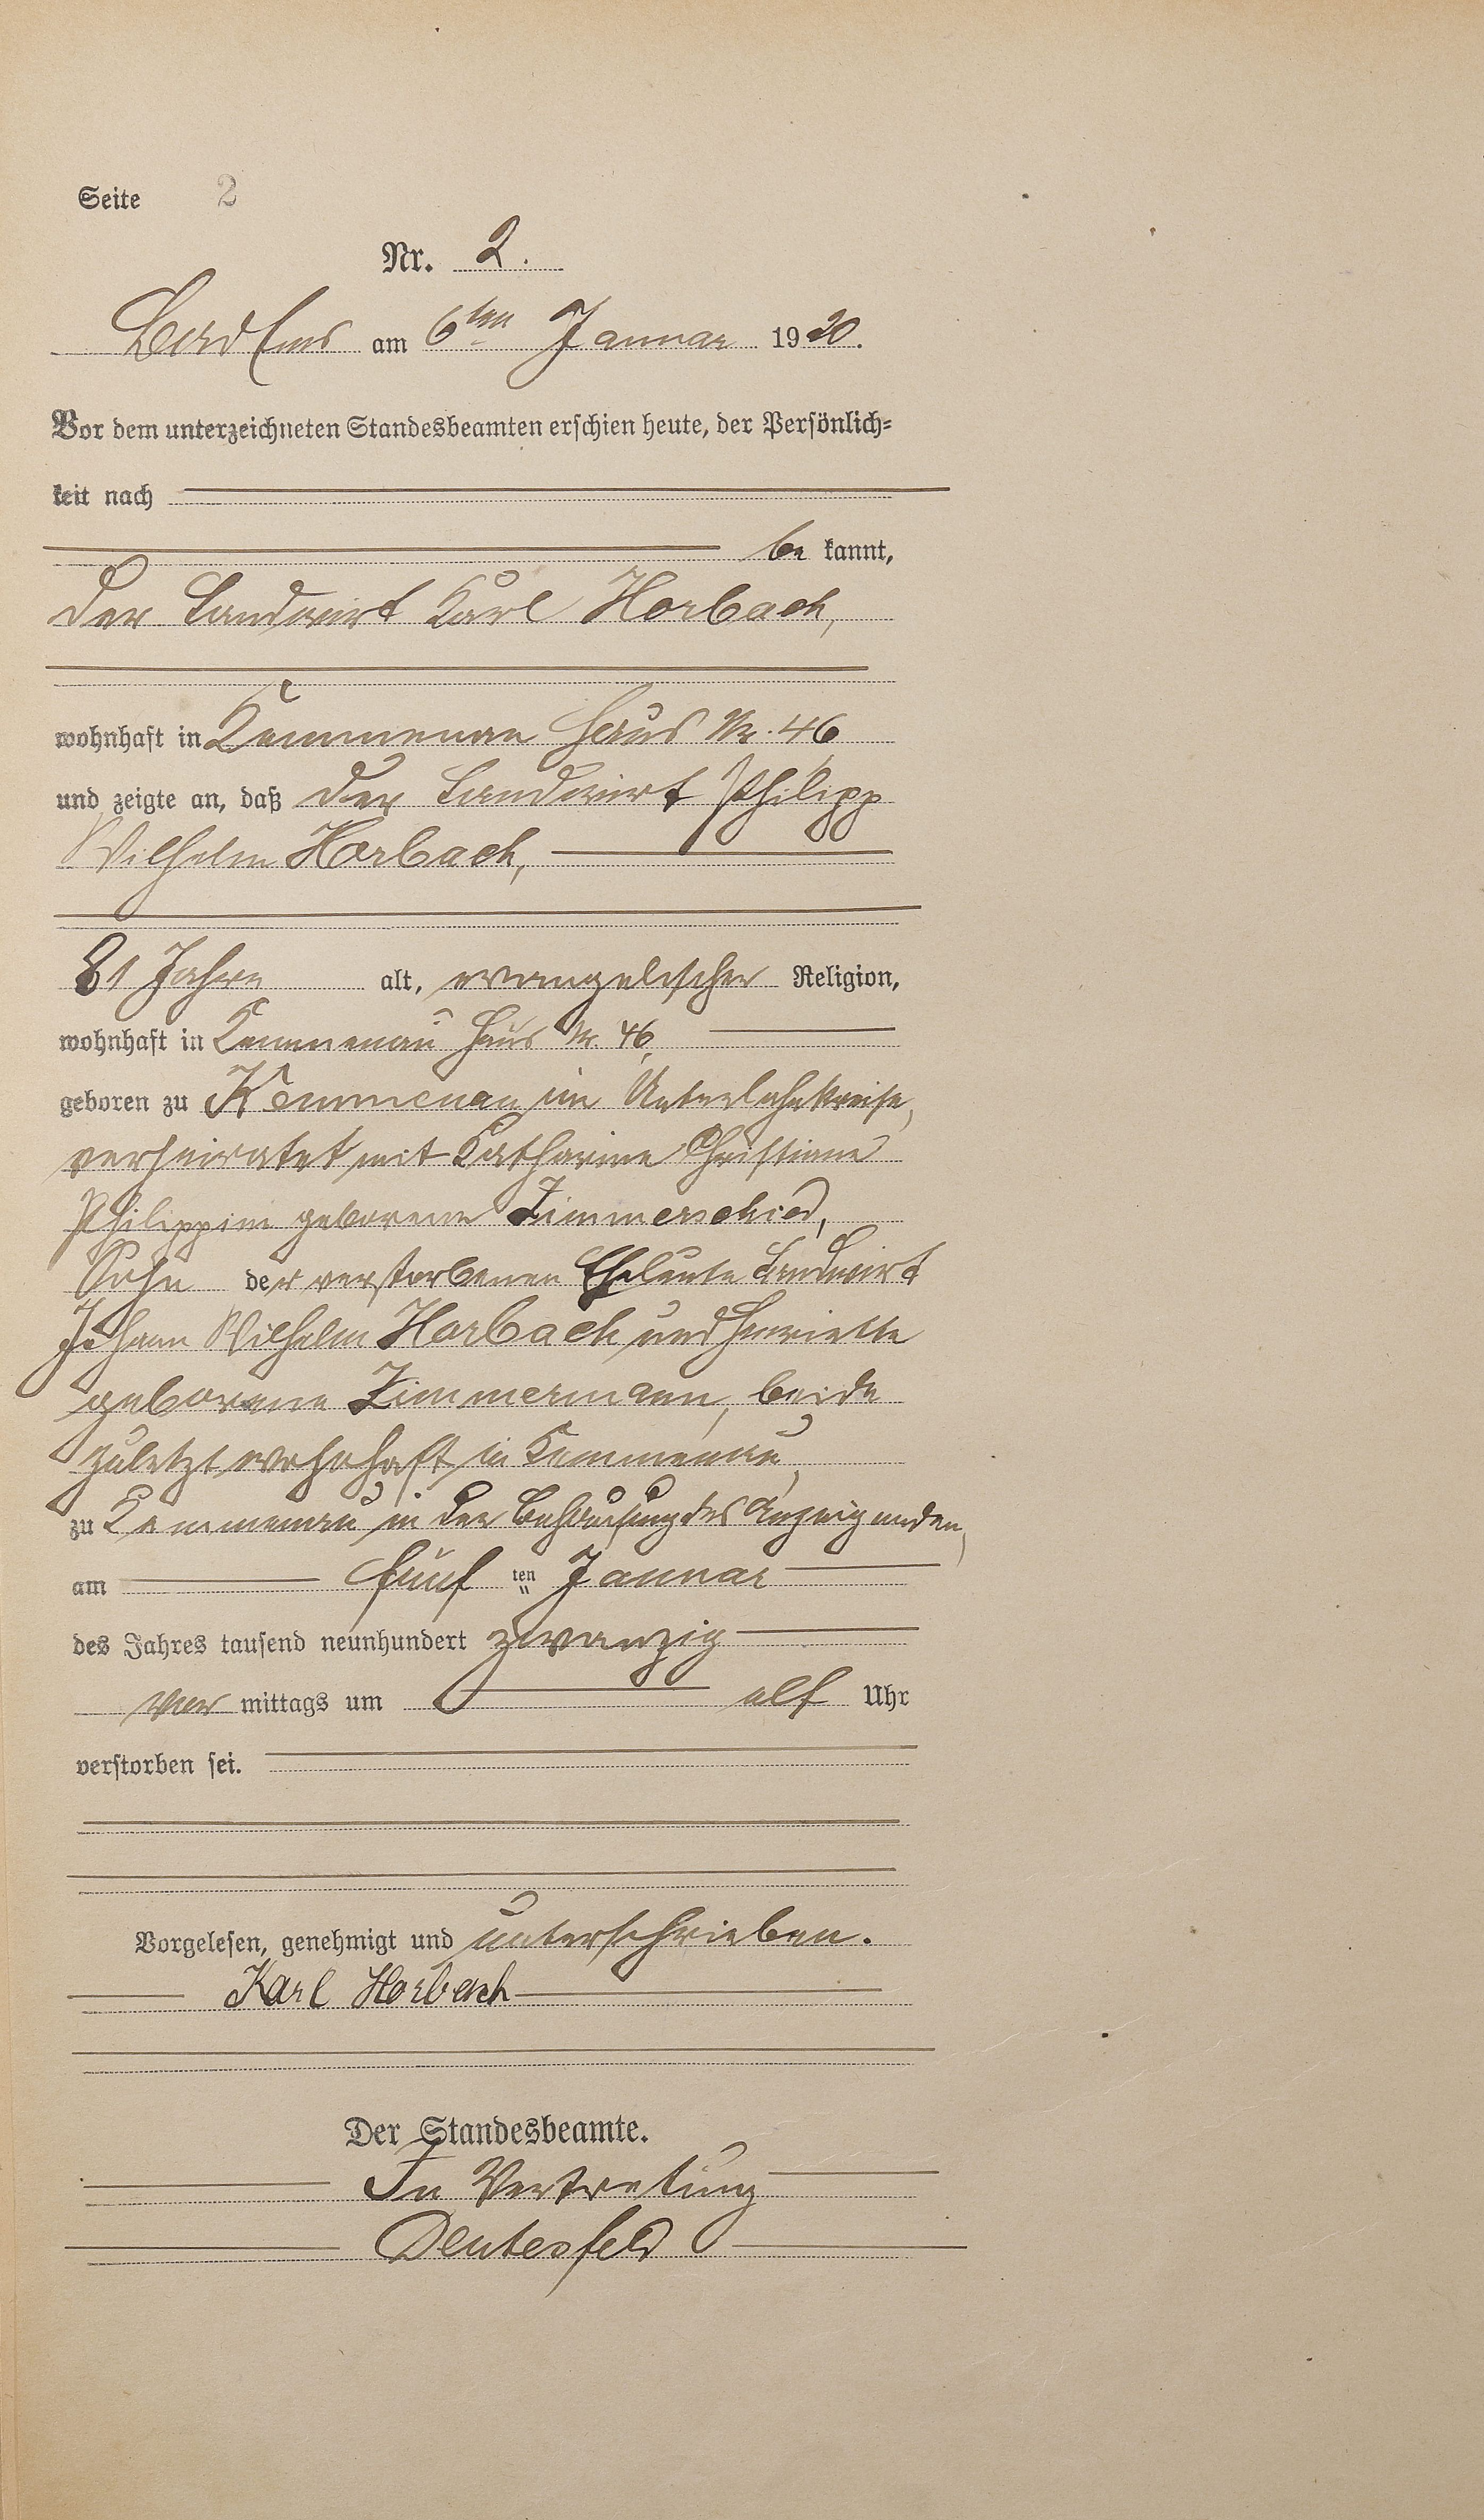 Seite 2
Nr. 2.
Bad Ems am 6ten Januar 1920.
Vor dem unterzeichneten Standesbeamten erschien heute, der Persönlich-
keit nach
be kannt,
der Landwirt Karl Horbach,
wohnhaft in Kemmenau Haus Nr. 46
und zeigte an, daß der Landwirt Philipp
Wilhelm Horbach,
81 Jahre alt, evangelischer Religion,
wohnhaft in Kemmenau Haus Nr. 46,
geboren zu Kemmenau im Unterlahnkreise,
verheiratet mit Katharine Christiane
Philippine geborene Zimmerschied,
Sohn der verstorbenen Eheleute Landwirt
Johann Wilhelm Horbach und Henriette
geborene Zimmermann, beide
zuletzt wohnhaft in Kemmenau,
zu Kemmenau in der Behausung des Anzeigenden,
am fünf ten Januar
des Jahres tausend neunhundert zwanzig
vor mittags um elf Uhr
verstorben sei.
Vorgelesen, genehmigt und unterschrieben.
Karl Horbach
Der Standesbeamte.
In Vertretung